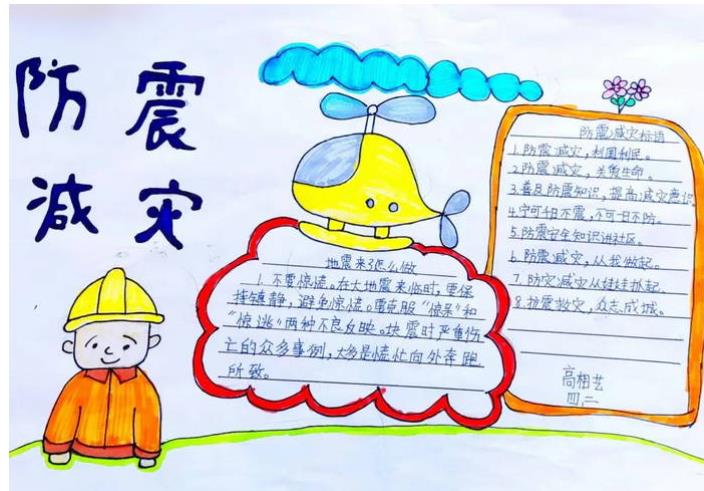 防震
减灾
地震来了怎么做
1. 不要惊慌。在大地震来临时，要保
持镇静，避免惊慌。要克服“惊呆”和
“惊逃”两种不良反映。地震时严重伤
亡的众多事例，大多是慌忙向外奔跑
所致。
防震减灾标语
1.防震减灾，利国利民。
2.防震减灾，关爱生命。
3.普及防震知识，提高减灾意识
4.宁可千日不震，不可一日不防。
5.防震安全知识进社区。
6.防震减灾，从我做起。
7.防灾减灾从娃娃抓起
8.抗震救灾，众志成城。
高相艺
四.二